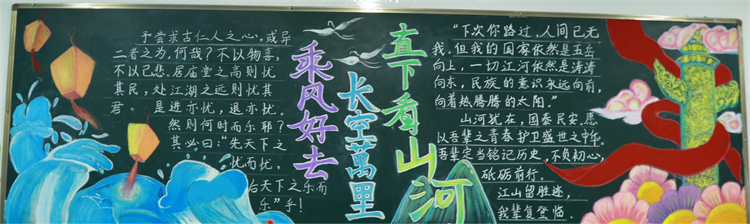 予尝求古仁人之心，或异
二者之为，何哉？不以物喜，
不以己悲，居庙堂之高则忧
其民，处江湖之远则忧其
君。是进亦忧，退亦忧。
然则何时而乐耶？
其必曰：“先天下之
忧而忧，
后天下之乐而
乐”乎！
乘风好去
长空萬里
直下看山河
“下次你路过，人间已无
我，但我的国家依然是五岳
向上，一切江河依然是涛涛
向东，民族的意识永远向前，
向着热腾腾的太阳。”
山河犹在，国泰民安，愿
以吾辈之青春护卫盛世之中华。
吾辈定当铭记历史，不负初心，
砥砺前行。
江山留胜迹，
我辈复登临